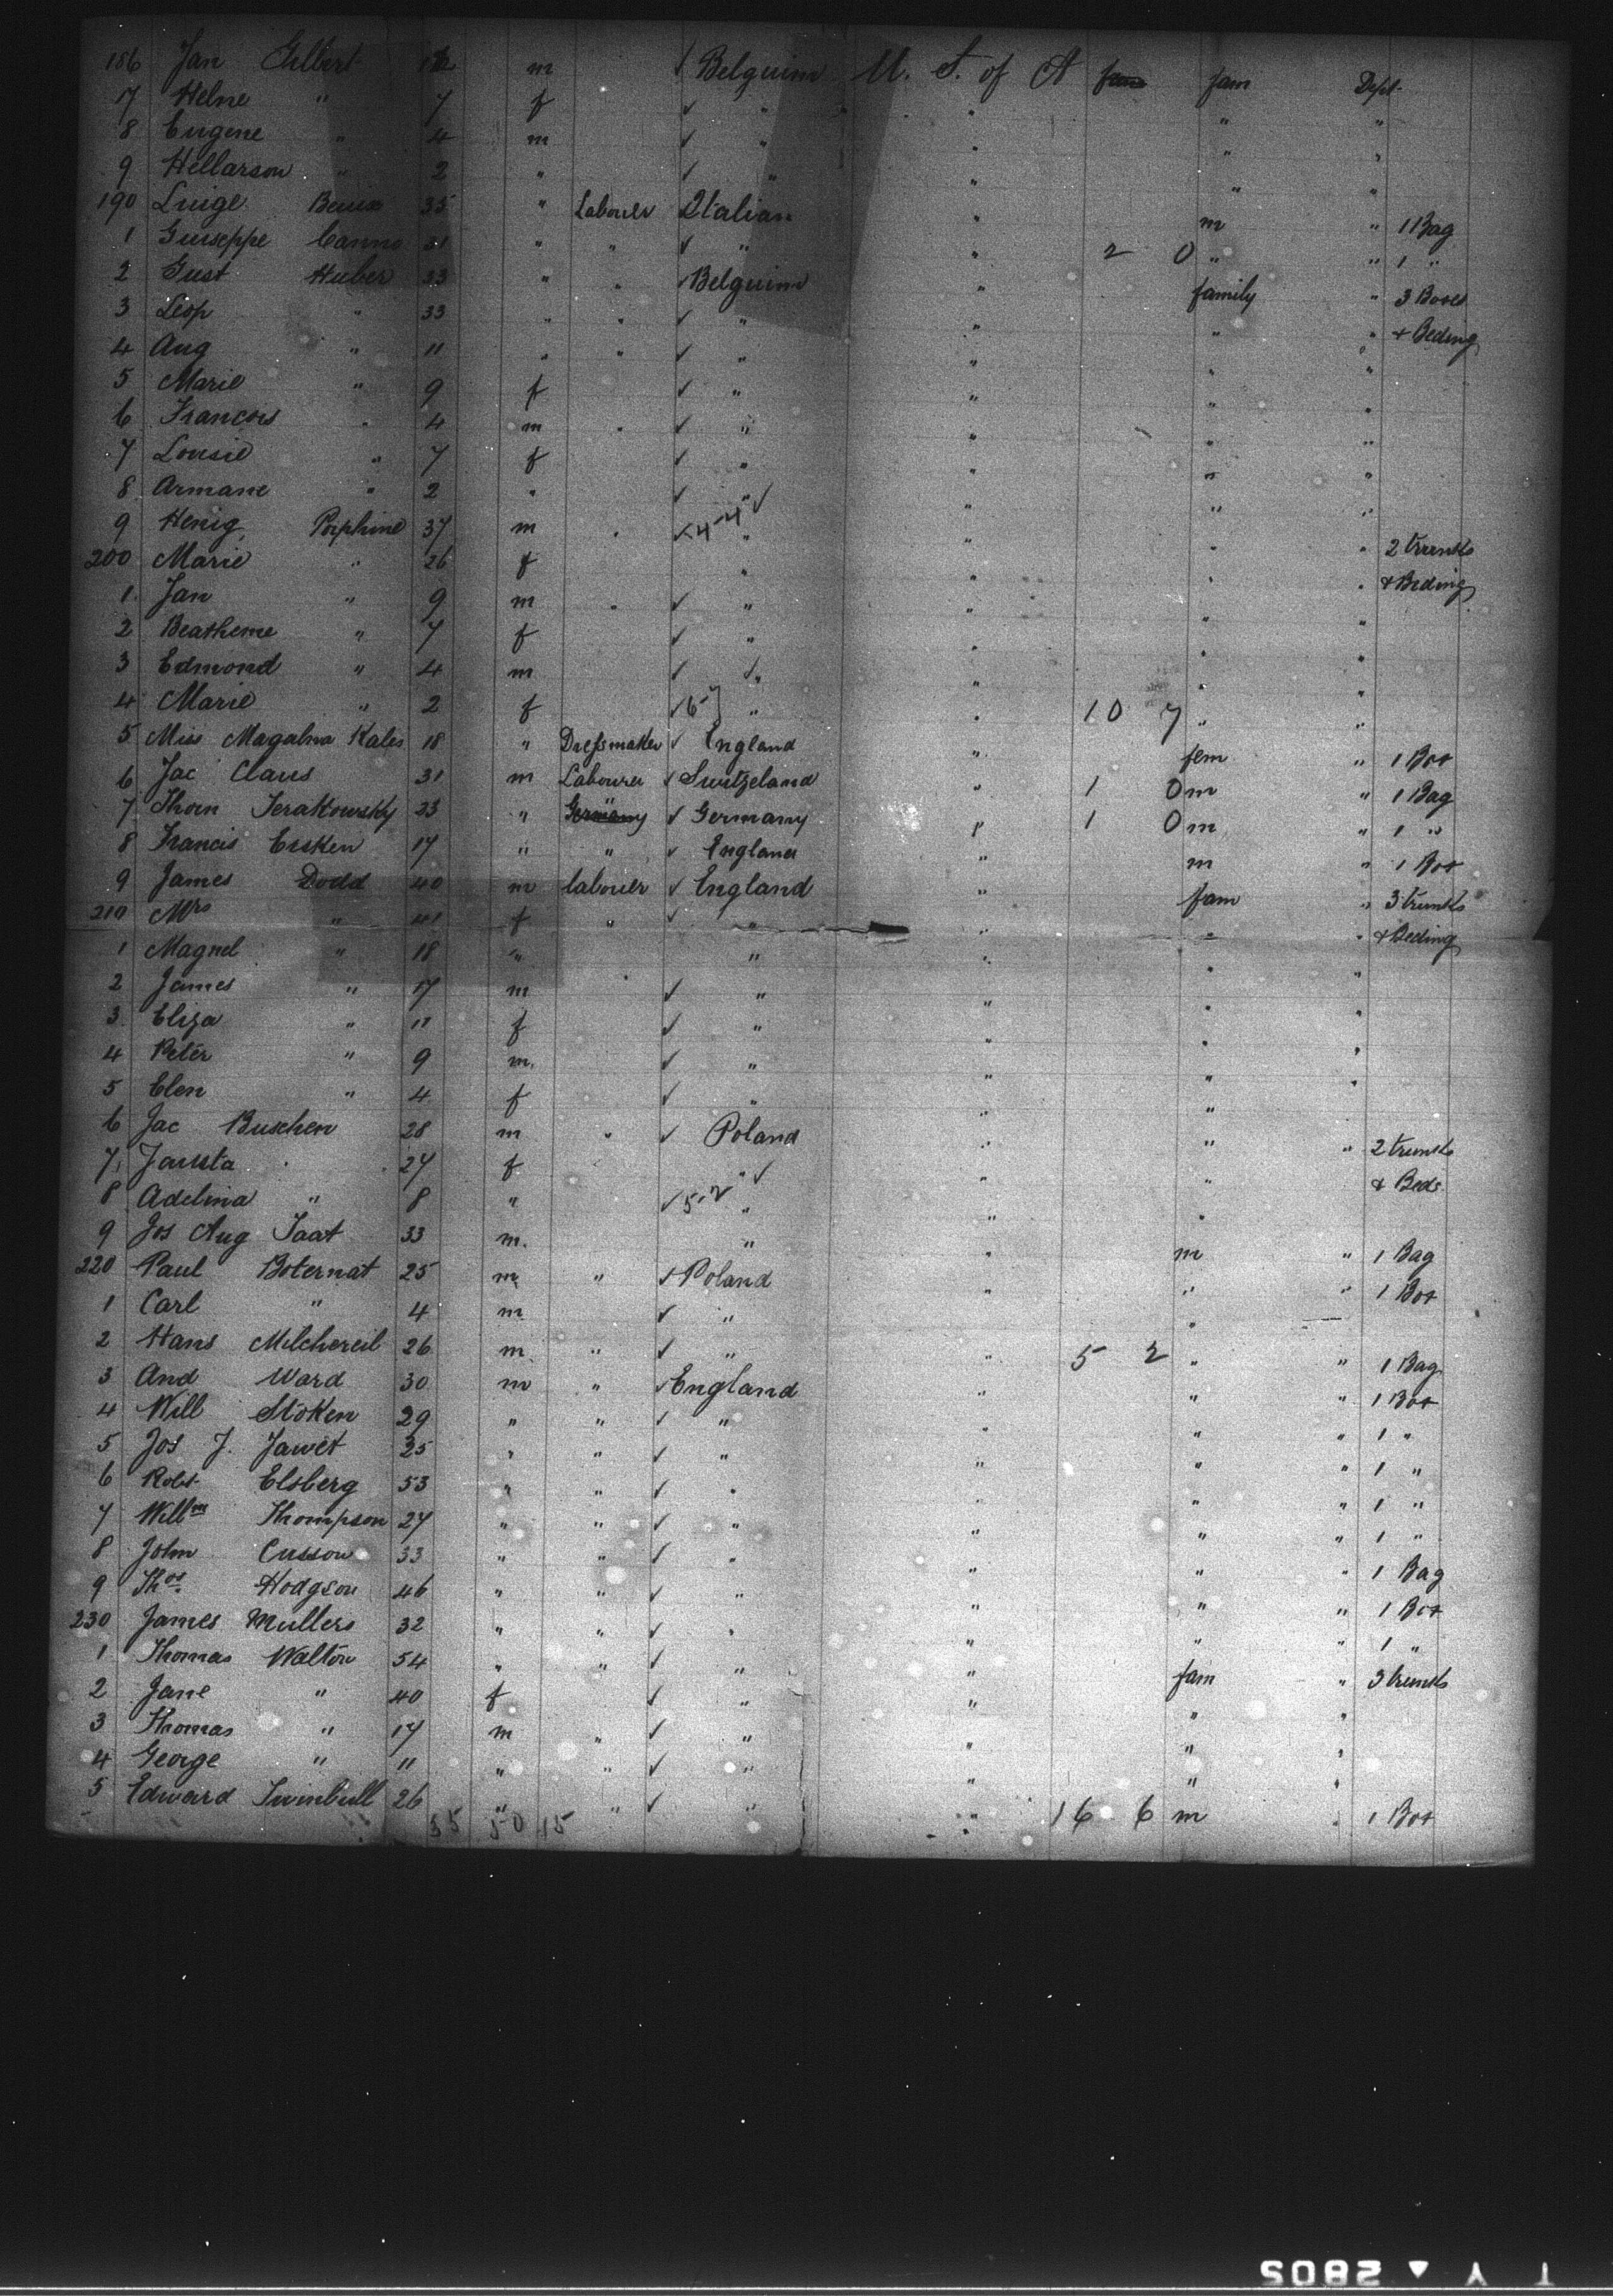 186 Jan Gilbert m Belguim U. S. of A fam Dept.
7 Helne " 7 f " " " "
8 Eugene " 4 m " " " "
9 Hellarson " 2 " " " " "
190 Luige 35 " Labouer Italian " m " 1 Bag
1 Guiseppe Canno 31 " " " " 2 0 " " 1 "
2 Gust Huber 33 " " Belguim " family " 3 Boxes
3 Leop " 33 " " " " " " + Beding
4 Aug " 11 " " " " " "
5 Marie " 9 f " " " "
6 Francois " 4 m " " " " "
7 Lousie " 7 f " " " "
8 Armane " 2 " " " " "
9 Henig Porphine 37 m " 4-4 " " " " 2 trunks
200 Marie " 26 f " " " " + Beding
1 Jan " 9 m " " " " "
2 Beatheme " 7 f " " " "
3 Edmond " 4 m " " " "
4 Marie " 2 f 6-7 " " 10 7 " "
5 Miss Magalina Kales 18 " Dressmaker England " fem " 1 Box
6 Jac Claus 31 m Labourer Switzeland " 1 0 m " 1 Bag
7 Thorn Terakowsky 23 " Germany Germany " 1 0 m " 1 "
8 Francis Ersken 17 " " England " m " 1 Box
9 James Dodd 40 m labouer England " fam " 3 trunks
210 Mrs " 41 f " " " " " + Beding
1 Magnel " 18 " " " " "
2 James " 17 m " " " " "
3 Eliza " 11 f " " " "
4 Peter " 9 m. " " " "
5 Elen " 4 f " " "
6 Jac Buschen 28 m " Poland " " " 2 trunks
7 Jausta " 27 f " " " + Beds
8 Adelina " 8 " 5-2 " " "
9 Jos Aug Taat 33 m. " " m " 1 Bag
220 Paul Boternat 25 m " Poland " " " 1 Box
1 Carl " 4 m " "
2 Hans Milchereil 26 m " " " 5 2 " " 1 Bag
3 And Ward 30 m " England " " " 1 Box
4 Will Stoken 29 " " " " " " 1 "
5 Jos J. Jawet 35 " " " " " " 1 "
6 Robt Elsberg 53 " " " " " " 1 "
7 Willm Thompson 27 " " " " " " 1 "
8 John Cusson 33 " " " " " " 1 Bag
9 Thos. Hodgson 46 " " " " " " 1 Box
230 James Mullers 32 " " " " " " 1 "
1 Thomas Walton 54 " " " " fam " 3 trunks
2 Jane " 40 f " " " "
3 Thomas " 17 m " " " " "
4 George " 11 " " " " " "
5 Edward 26 " " " " 16 6 m " 1 Box
35 50 15
T Y ▲ 2805